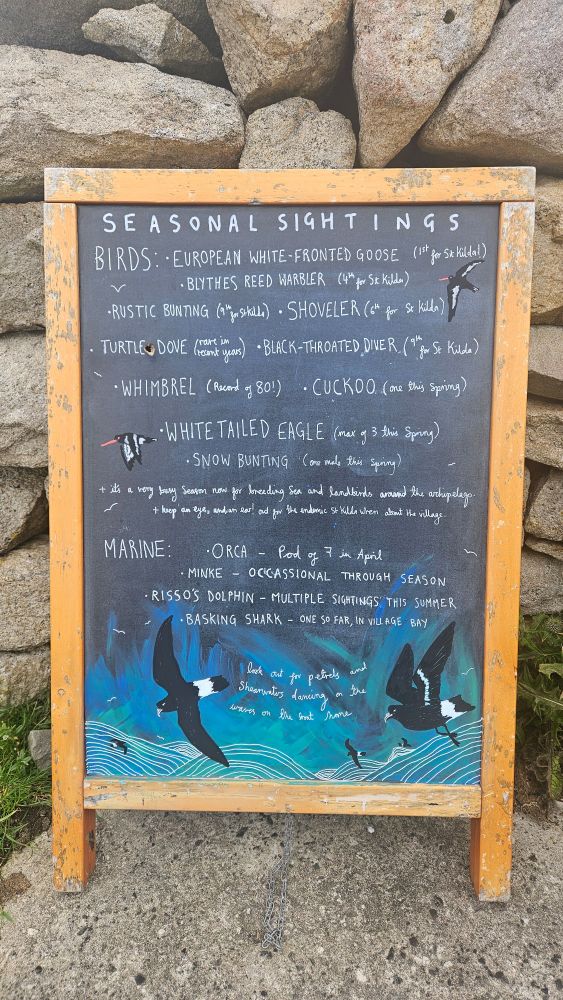 SEASONAL SIGHTINGS
BIRDS: · EUROPEAN WHITE-FRONTED GOOSE (1st for St Kilda!)
· BLYTHES REED WARBLER (4th for St Kilda)
· RUSTIC BUNTING (9th for St Kilda) · SHOVELER (6th for St Kilda)
· TURTLE DOVE (rare in recent years) · BLACK-THROATED DIVER (9th for St Kilda)
· WHIMBREL (Record of 80!) · CUCKOO (one this Spring)
· WHITE TAILED EAGLE (max of 3 this Spring)
· SNOW BUNTING (one male this Spring)
+ it's a very busy Season now for breeding Sea and landbirds around the archipelago.
+ keep an eye, and an ear! out for the endemic St Kilda Wren about the village.
MARINE: · ORCA - Pod of 7 in April
· MINKE - OCCASSIONAL THROUGH SEASON
· RISSO'S DOLPHIN - MULTIPLE SIGHTINGS THIS SUMMER
· BASKING SHARK - ONE SO FAR, IN VILLAGE BAY
look out for petrels and
Shearwaters dancing on the
waves on the boat home